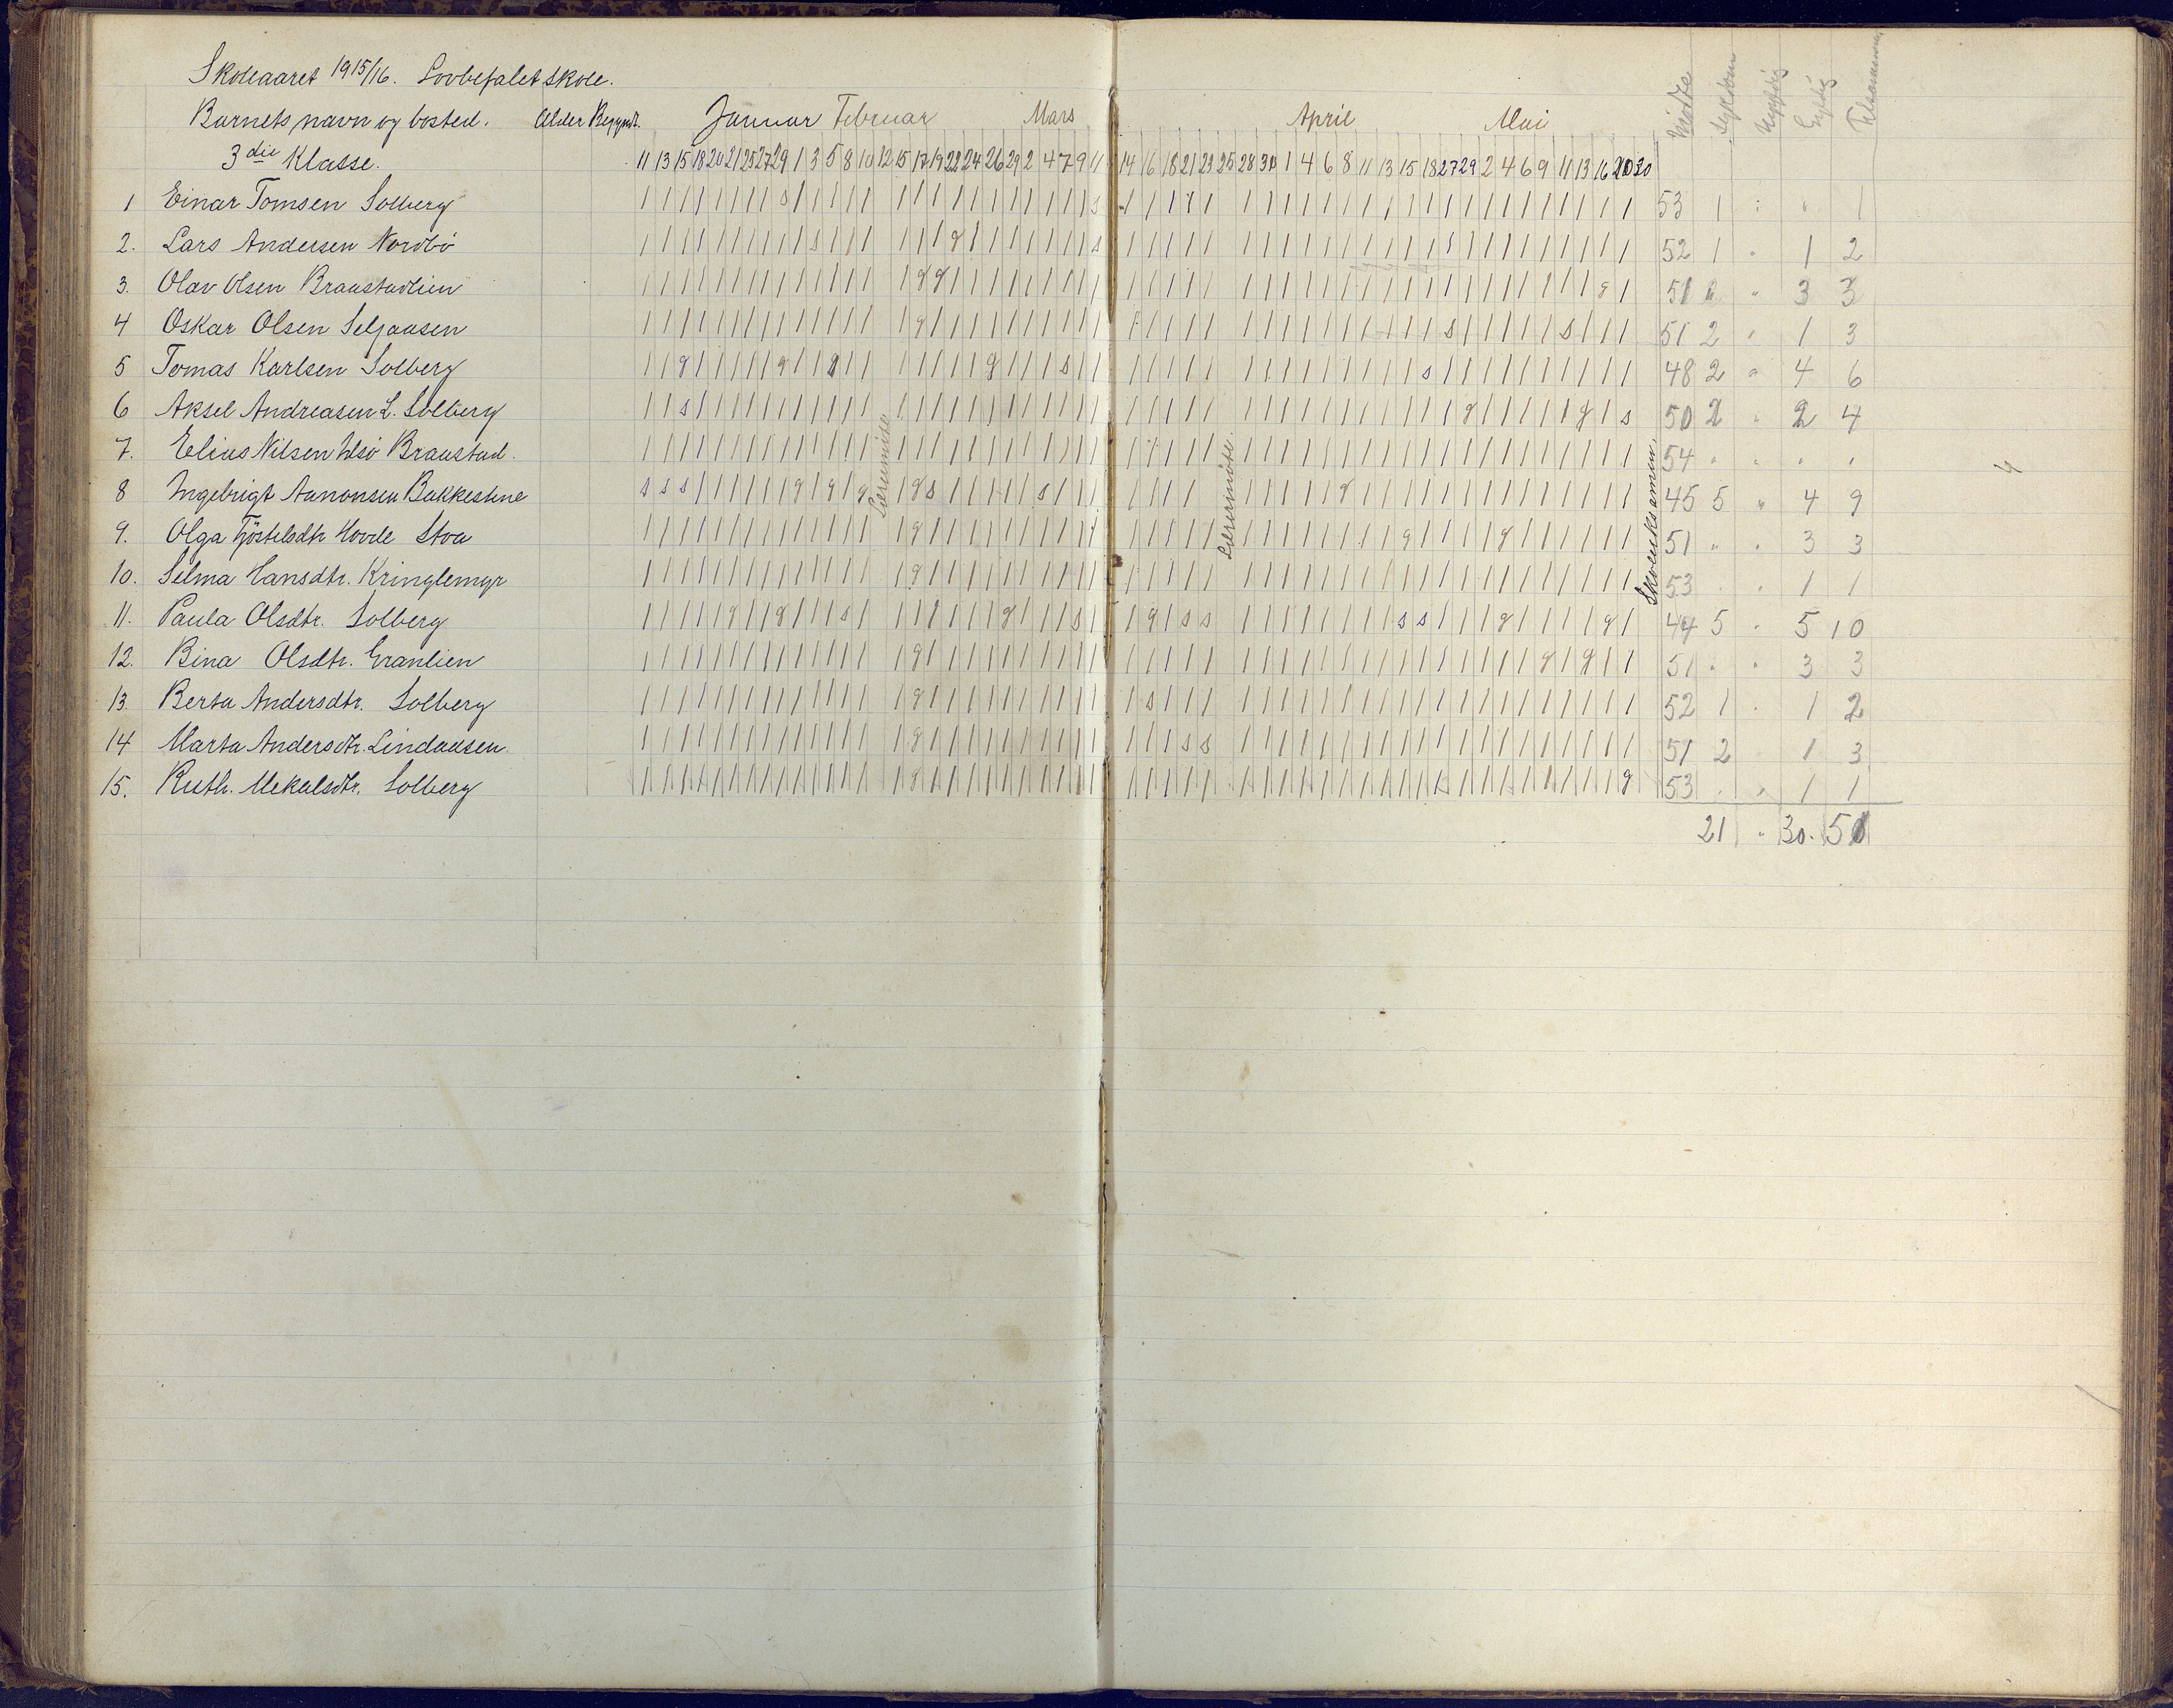 Skoleaaret 1915/16. Lovbefalet skole.
Barnets navn og bosted. Alder Begyndt. Januar Februar Mars April Mai Mødte Sygdom Ugyldig Gyldig Tilsammen
3die Klasse. 11 13 15 18 20 21 25 27 29 1 3 5 8 10 12 15 17 19 22 24 26 29 2 4 7 9 11 14 16 18 21 23 25 28 30 1 4 6 8 11 13 15 18 27 29 2 4 6 9 11 13 16 20 30
1 Einar Tomsen Solberg 53 1 " " 1
2. Lars Andersen Nordbö 52 1 " 1 2
3. Olav Olsen Braastadlien 51 " " 3 3
4 Oskar Olsen Seljaasen 51 2 " 1 3
5 Tomas Karlsen Solberg 48 2 " 4 6
6 Aksel Andreasen L. Solberg 50 2 " 2 4
7. Elius Nilsen Braastad. 54 " " " "
8 Ingebrigt Aanonsen Bakkestue 45 5 " 4 9
9. Olga Tjöstelsdtr Hovde Stoa 51 " " 3 3
10. Selma Hansdtr. Kringlemyr 53 " " 1 1
11. Paula Olsdtr. Solberg 44 5 " 5 10
12. Bina Olsdtr. Granlien 51 " " 3 3
13. Berta Andersdtr. Solberg 52 1 " 1 2
14 Marta Andersdtr. Lindaasen. 51 2 1 3
15. Ruth. Mekalsdtr. Solberg 53 " " 1 1
21 " 30. 51
Lærermöte
Lærermöte.
Skoleeksamen.